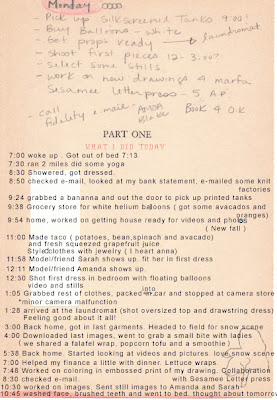 Monday
- Pick up Silkscreened Tanks 9:00!
- Buy Ballons - white
- Get props ready → laundromat
- Shoot first pieces 12-3:00?
- Select some stills
- work on new drawings 4 marfa
Sesamee letterpress - 5 AP
- call Amanda Book 4 O.K
fidelity e-mail -
PART ONE
WHAT I DID TODAY
7:00 woke up . Got out of bed 7:13
7:30 ran 2 miles did some yoga
8:30 Showered, got dressed.
8:50 checked e-mail, looked at my bank statement, e-mailed some knit
factories
9:24 grabbed a bananna and out the door to pick up printed tanks
9:38 Grocery store for white helium balloons ( got some avacados and
oranges)
9:54 home, worked on getting house ready for videos and photos
( New fall )
11:00 Made taco ( potatoes, bean,spinach and avacado)
and fresh squeezed grapefruit juice.
Style clothes with jewelry ( I heart anna)
11:58 Model/friend Sarah shows up. fit her in first dress
12:11 Model/friend Amanda shows up.
12:30 Shot first dress in bedroom with floating balloons
video and stills
into
1:05 Grabbed rest of clothes, packed car and stopped at camera store
*minor camera malfunction
1:28 arrived at the laundromat (shot oversized top and drawstring dress)
Feeling good about it all!
3:00 Back home, got in last garments. Headed to field for snow scene
4:00 Downloaded last images, went to grab a small bite with ladies
( we shared a falafel wrap, popcorn tofu and a smoothie)
5:38 Back home. Started looking at videos and pictures love snow scene
7:00 Helped my finance a little with dinner. Lettuce wraps
7:48 Worked on coloring in embossed print of my drawing. Collaboration
8:30 checked e-mail. with Sesame Letter press
10:30 worked on images. Sent still images to Amanda and Sarah
10:45 washed face, brushed teeth and went to bed. thought about tomorrow